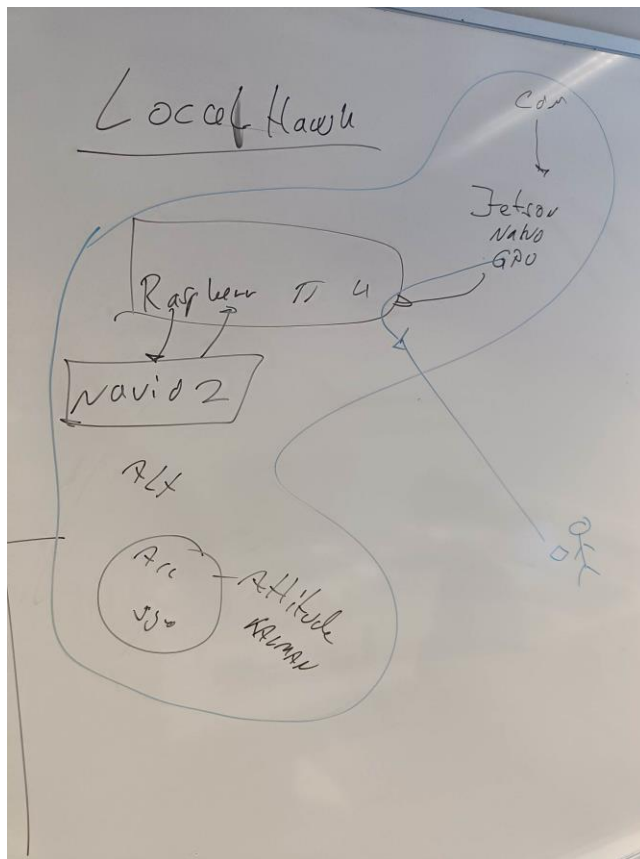 Local Hawk
Cam
Jetson
Nano
GPU
Raspberr π 4
Navio 2
Acc
Attitude
KALMAN